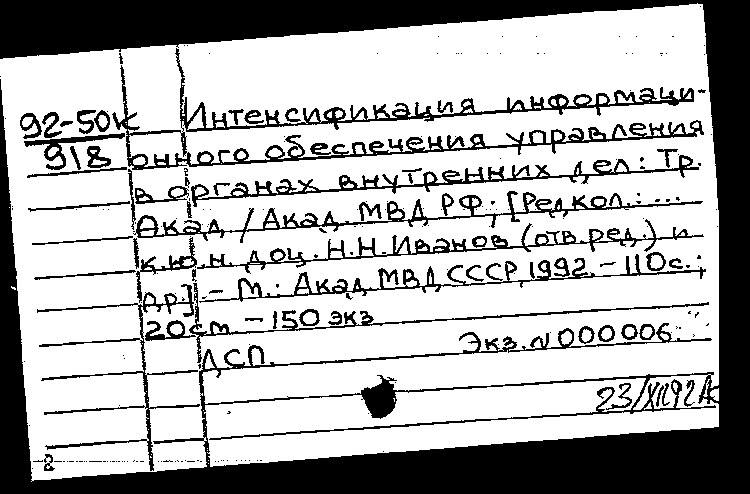 92-50к Интенсификация информаци-
918 онного обеспечения управления
в органах внутренних дел: Тр.
Акад / Акад. МВД РФ; [Редкол.: ...
к.ю.н. доц. Н.Н. Иванов (отв.ред.) и
др.] – М.: Акад. МВД СССР, 1992. – 110с.;
20см – 150 экз
ДСП. Экз. N 000006.
23/XII92
2